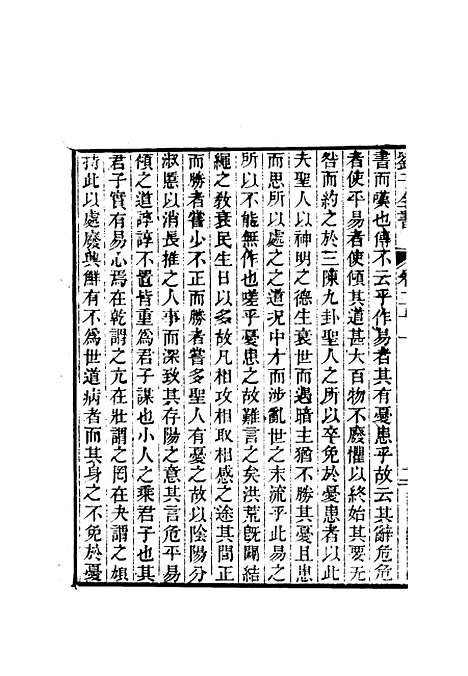 劉子全書
書而嘆也傳不云乎作易者其有憂患乎故云其辭危危
者使平易者使傾其道甚大百物不廢懼以終始其要无
咎而約之於三陳九卦聖人之所以卒免於憂患者以此
夫聖人以神明之德生衰世而遇暗主猶不勝其憂且患
而思所以處之之道況中才而涉亂世之末流乎此易之
所以不能無作也嗟乎憂患之故難言之矣洪荒旣闢結
繩之敎衰民生日以多故凡相攻相取相感之途其間正
而勝者嘗少不正而勝者嘗多聖人有憂之故以陰陽分
淑慝以消長推之人事而深致其存陽之意其言危平易
傾之道諄諄不置皆重爲君子謀也小人之乘君子也其
君子實有易心焉在乾謂之亢在壯謂之罔在夬謂之頄
持此以處廢興鮮有不爲世道病者而其身之不免於憂